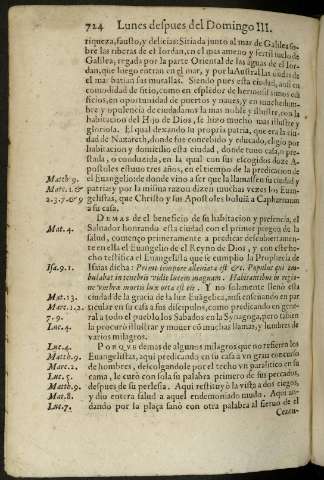 724 Lunes despues del Domingo III.
riqueza, fausto, y delicias: Sitiada junto al mar de Galilea so-
bre las riberas de el Iordan, en el mas ameno y fertil suelo de
Galilea, regada por la parte Oriental de las aguas de el Ior-
dan, que luego entran en el mar, y por la Austral las ondas de
el mar batian sus murallas. Siendo pues esta ciudad, assi en
comodidad de sitio, como en esplédor de hermosissimos edi
ficios, en oportunidad de puertos y naues, y en muchedum-
bre y opulencia de ciudadanos la mas noble y illustre, con la
habitacion del Hijo de Dios, se hizo mucho mas illustre y
gloriosa. El qual dexando su propria patria, que era la ciu-
dad de Nazareth, donde fue concebido y educado, eligió por
habitacion y domicilio esta ciudad, donde tenia casa, o pre-
stada, o conduzida, en la qual con sus escogidos doze A-
postoles estuuo tres años, en el tiempo de la predicacion de
Matth 9. el Euangelio: de donde vino a ser que la llamassen su ciudad y
Marc. 2. & patria: y por la misma razon dizen muchas vezes los Euan-
2.3.7. & 9 gelistas, que Christo y sus Apostoles boluiā a Capharnaum
a su casa.
DEMAS de el beneficio de su habitacion y presencia, el
Mat. 4. Saluador honrando esta ciudad con el primer pregon de la
salud, començo primeramente a predicar descubiertamen-
te en ella el Euangelio de el Reyno de Dios, y con este he-
cho testifica el Euangelista que se cumplio la Prophecia de
Isa. 9. 1. Isaias dicha: Primo tempore alleuiata est &c. Populus qui am-
bulabat in tenebris vidit lucem magnam. Habitantibus in regio-
ne vmbra mortis lux orta est eis. Y no solamente llenó esta
Mat. 13. ciudad de la gracia de la luz Euāgelica, enseñando en par
Marc. 1.2. ticular en su casa a sus discipulos, como predicando en gene-
7. 9. ral a todo el pueblo los Sabados en la Synagoga, pero tambien
Luc. 4. la procuró illustrar y mouer có muchas llamas, y lumbres de
varios milagros.
Luc. 4. PORQVE demas de algunos milagros que no refieren los
Matth. 9. Euangelistas, aqui predicando en su casa a vn gran concurso
Marc. 2. de hombres, descolgandole por el techo vn paralitico en su
Luc. 5. cama, le curó con sola su palabra primero de sus peccados,
Matth. 9. despues de su perlesia. Aqui restituyó la vista a dos ciegos,
Mat. 8. y dio entera salud a aquel endemoniado mudo. Aqui an-
Luc. 7. dando por la plaça sanó con otra palabra al sieruo de el
Centu-